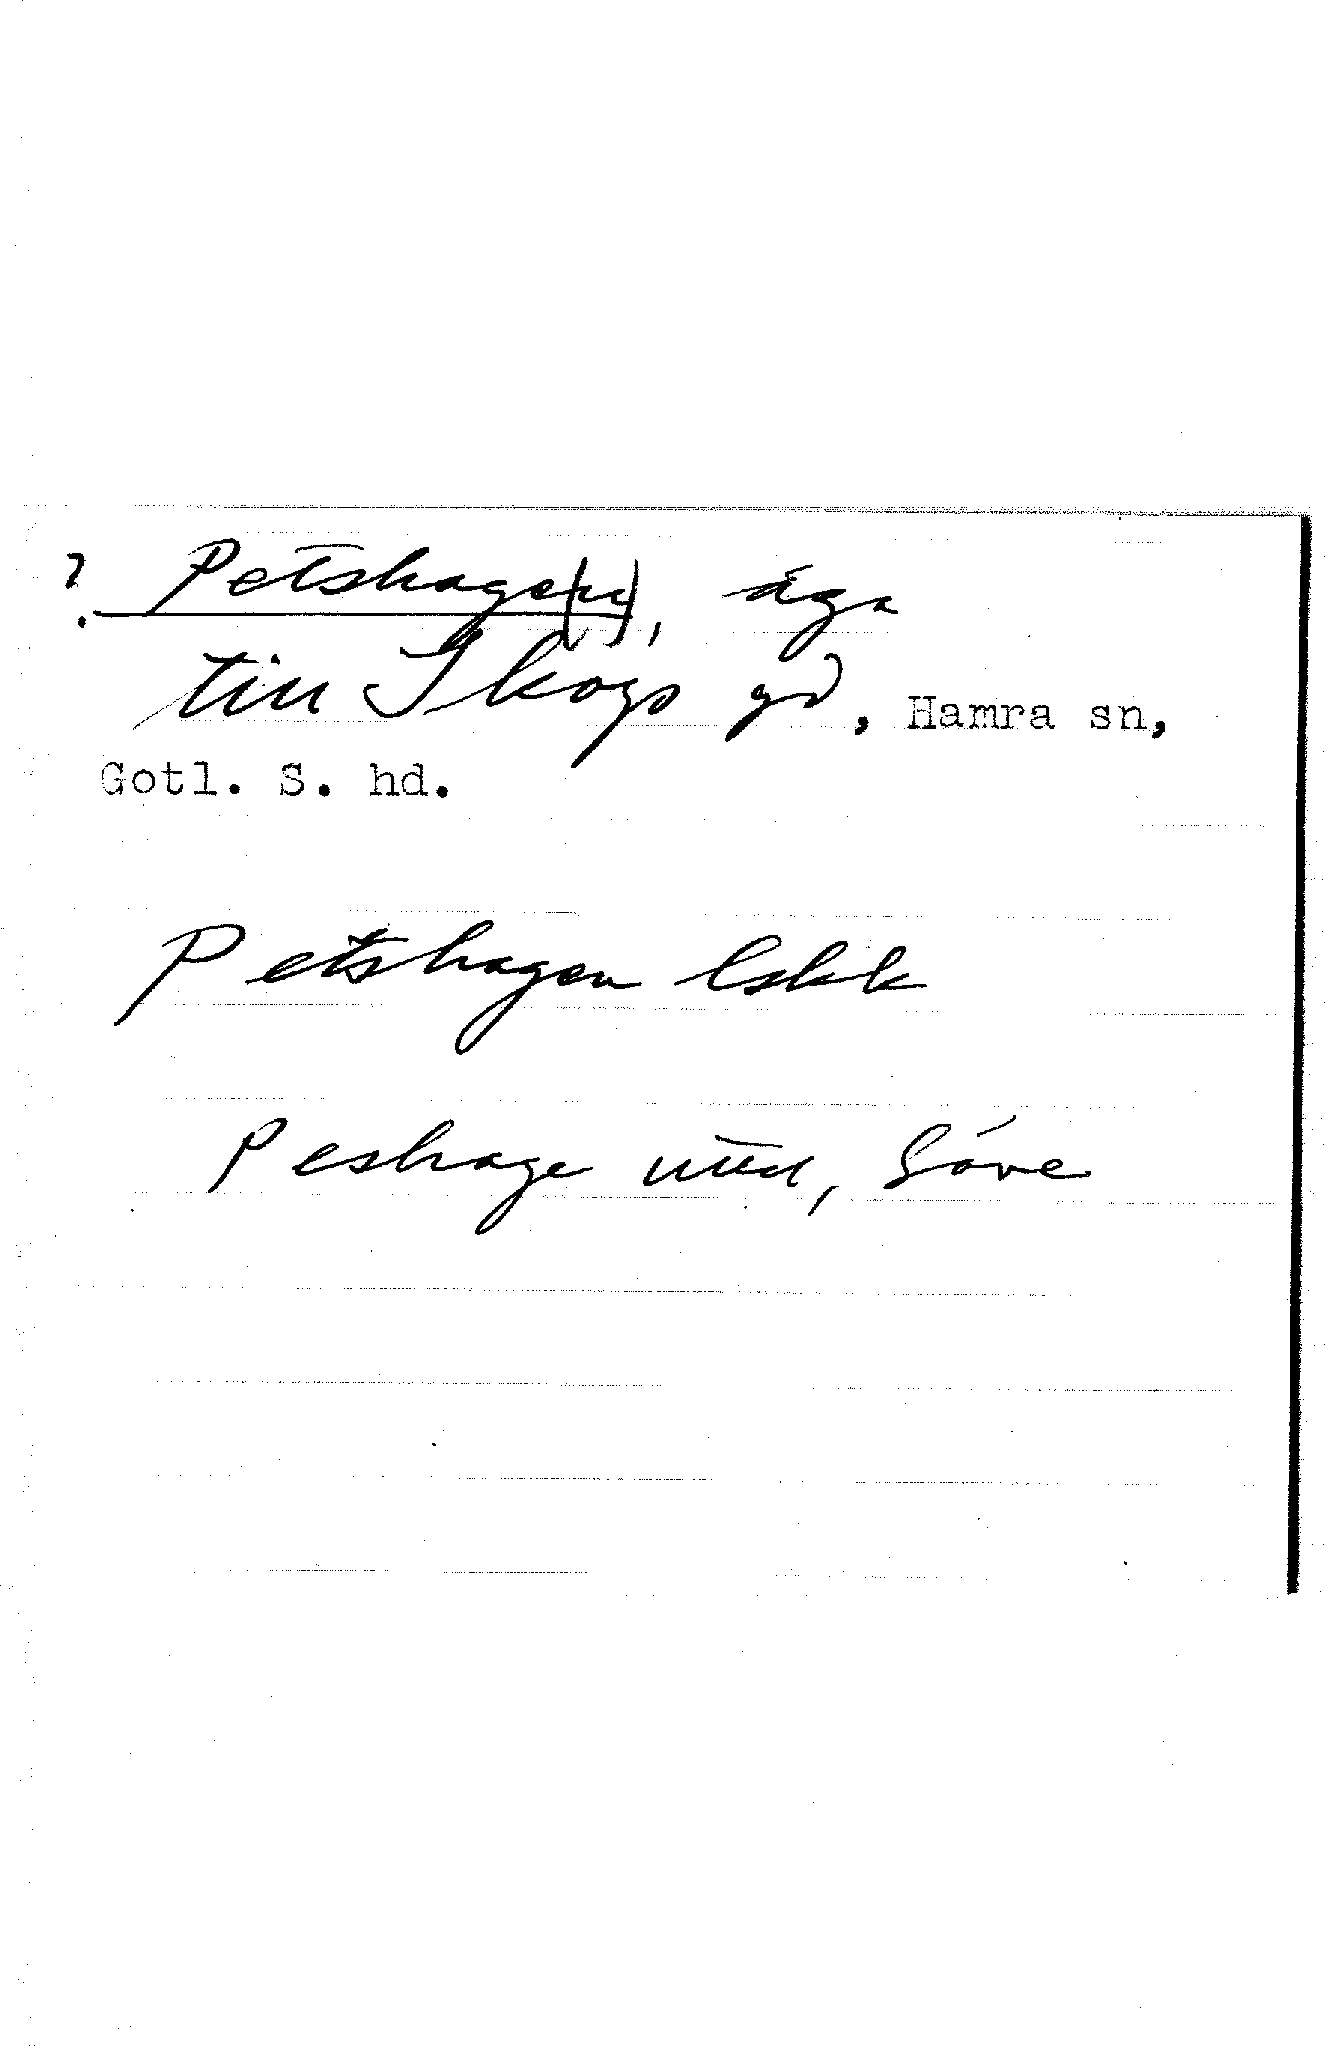 ? Petshage(n), äga
till Skogs gd, Hamra sn,
Gotl. S. hd.
Petshagen lskk
Peshage utt, Säve